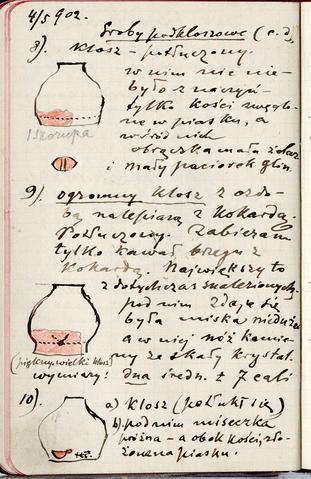 4/5 902.
Groby podkloszowe (c.d.)
8). Klosz – potłuczony.
w nim nic nie
było z naczyń
tylko kości węgle
w piasku, a
wśród nich
obrączka mała żelaz
i mały paciorek glin.
1 skorupa
9). ogromny klosz z ozdo-
bą nalepianą z kokardą.
Potłuczony. Zabieram
tylko kawał brzegu z
kokardą. Największy to
z dotychczas znalezionych.
pod nim zdaje się
była miska nieduża
a w niej nóż kamie
ny ze skały krystal.
(piękny, wielki klosz)
wymiary: dna średn. ± 7 cali
10). a) klosz (potłukł się)
b) pod nim miseczka
próżna – a obok kości, zło-
żone na piasku.